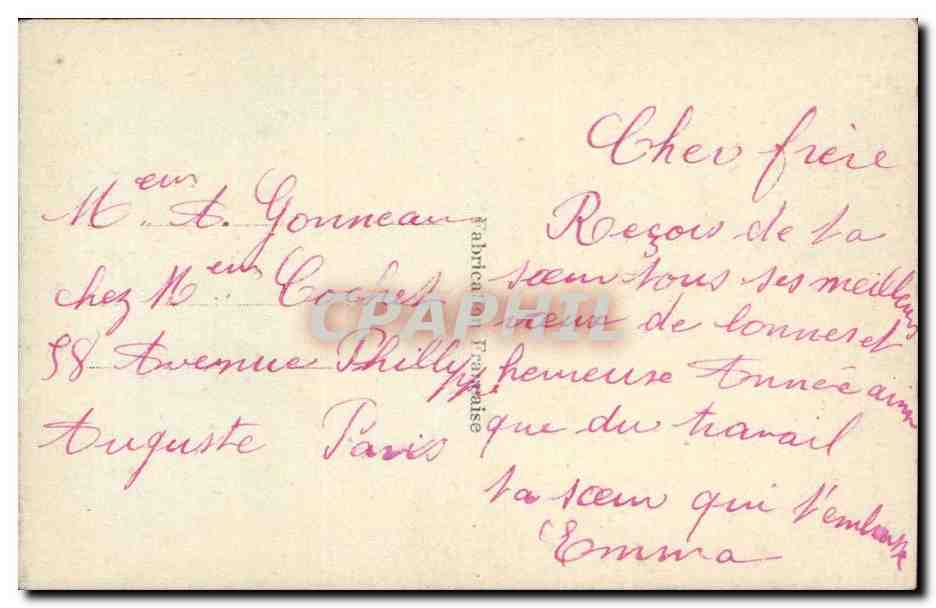 Meur A. Gonneau
chez Meur Coches
58 Avenue Philippe
Auguste Paris
Fabrication Française
Cher frère
Reçois de ta
sœur tous ses meilleurs
vœux de bonne et
heureuse Année ainsi
que du travail
ta sœur qui t'embrasse
Emma
CPAPHIL